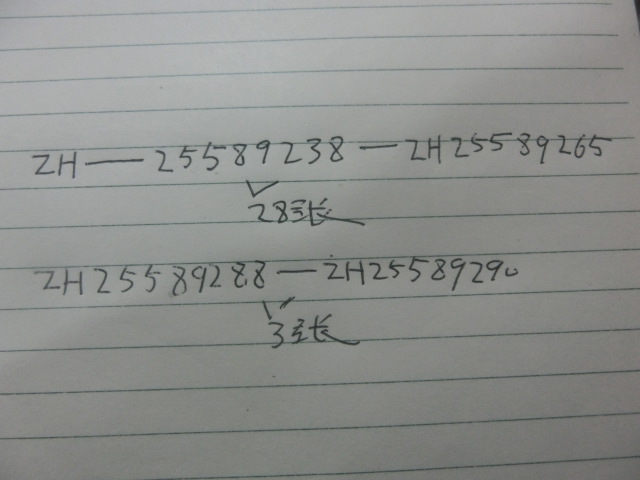 ZH——25589238—ZH25589265
28张
ZH25589288—ZH25589290
3张